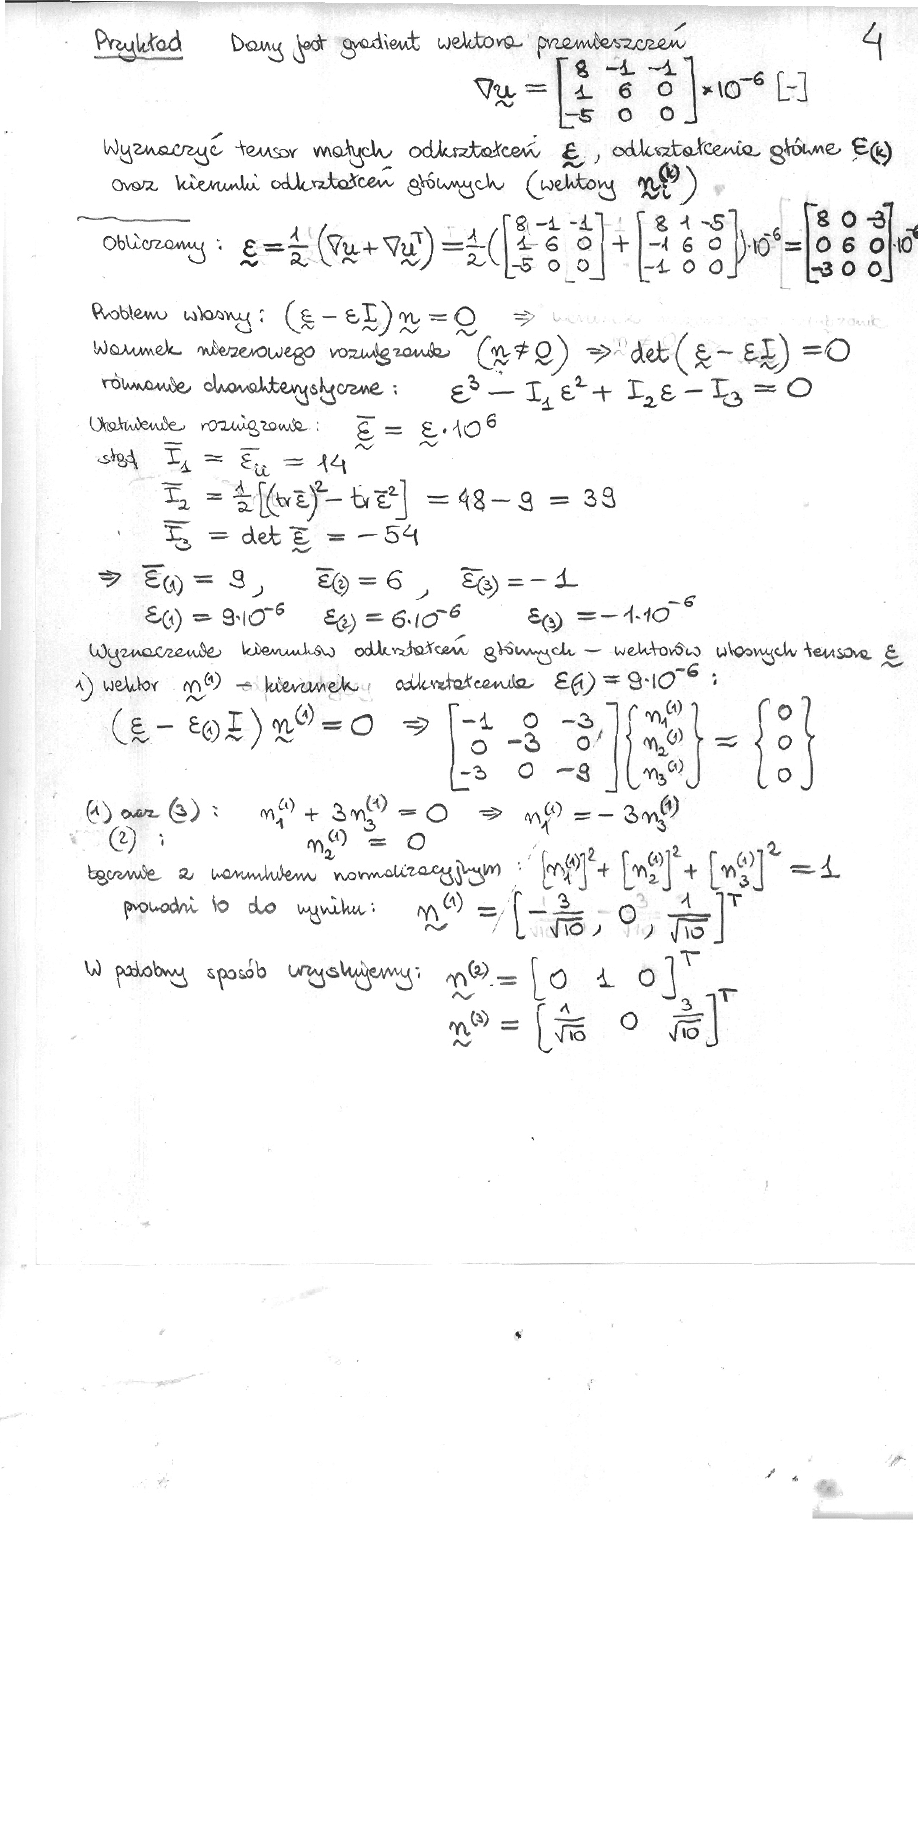 4
Przykład Dany jest gradient wektora przemieszczeń
∇u = [8 -1 -1; 1 6 0; -5 0 0] * 10⁻⁶ [-]
Wyznaczyć tensor małych odkształceń ε, odkształcenia główne ε(k)
oraz kierunki odkształceń głównych (wektory nᵢ⁽ᵏ⁾)
Obliczamy: ε = 1/2 (∇u + ∇uᵀ) = 1/2 ([8 -1 -1; 1 6 0; -5 0 0] + [8 1 -5; -1 6 0; -1 0 0])·10⁻⁶ = [8 0 -3; 0 6 0; -3 0 0]·10⁻⁶
Problem własny: (ε - εI) n = 0 ⇒
Warunek niezerowego rozwiązania (n ≠ 0) ⇒ det(ε - εI) = 0
równanie charakterystyczne: ε³ - I₁ε² + I₂ε - I₃ = 0
Ułatwienie rozwiązania: ε̄ = ε·10⁶
stąd Ī₁ = ε̄ᵢᵢ = 14
Ī₂ = 1/2 [(trε̄)² - trε̄²] = 48 - 9 = 39
Ī₃ = det ε̄ = -54
⇒ ε̄(1) = 9, ε̄(2) = 6, ε̄(3) = -1
ε(1) = 9·10⁻⁶ ε(2) = 6·10⁻⁶ ε(3) = -1·10⁻⁶
Wyznaczenie kierunków odkształceń głównych - wektorów własnych tensora ε
1) wektor n⁽¹⁾ - kierunek odkształcenia ε(1) = 9·10⁻⁶:
(ε - ε(1)I) n⁽¹⁾ = 0 ⇒ [-1 0 -3; 0 -3 0; -3 0 -9] {n₁⁽¹⁾; n₂⁽¹⁾; n₃⁽¹⁾} = {0; 0; 0}
(1) oraz (3): n₁⁽¹⁾ + 3n₃⁽¹⁾ = 0 ⇒ n₁⁽¹⁾ = -3n₃⁽¹⁾
(2): n₂⁽¹⁾ = 0
łącznie z warunkiem normalizacyjnym: [n₁⁽¹⁾]² + [n₂⁽¹⁾]² + [n₃⁽¹⁾]² = 1
prowadzi to do wyniku: n⁽¹⁾ = [-3/√10, 0, 1/√10]ᵀ
W podobny sposób uzyskujemy: n⁽²⁾ = [0 1 0]ᵀ
n⁽³⁾ = [1/√10 0 3/√10]ᵀ